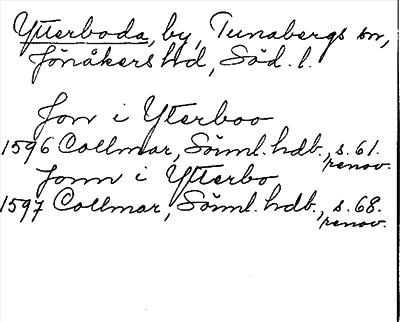 Ytterboda, by, Tunabergs sn,
Jönåkers hd, Söd. l.
Jon i Yterboo
1596 Collmar, Sörml. hdb., s. 61.
renov.
Jonn i Ytterbo
1597 Collmar, Sörml. hdb., s. 68.
renov.